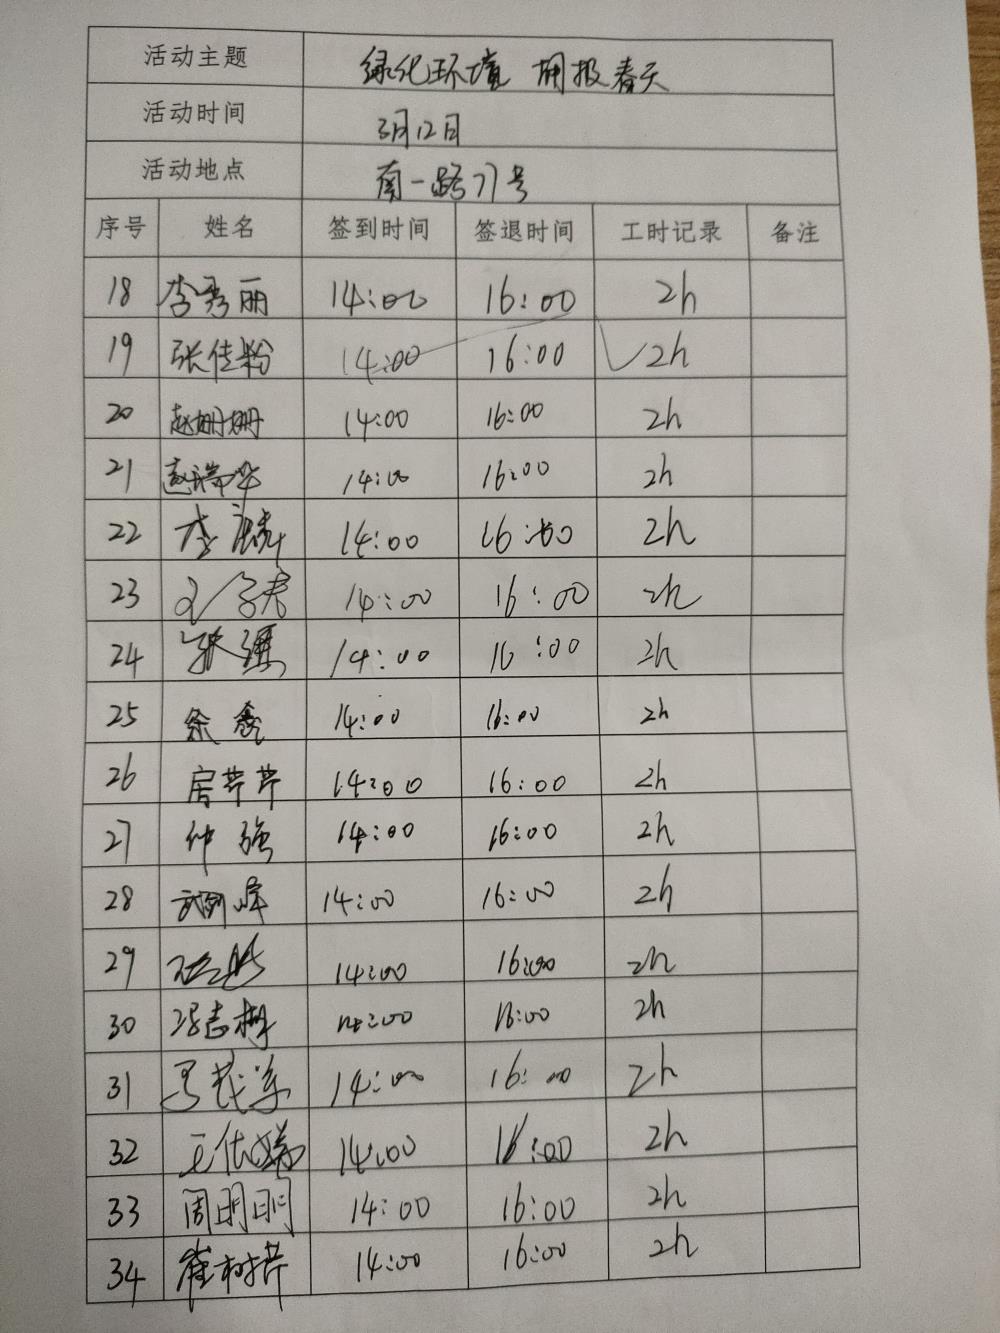 活动主题 绿化环境 拥报春天
活动时间 3月12日
活动地点 南一路71号
序号 姓名 签到时间 签退时间 工时记录 备注
18 李秀丽 14:00 16:00 2h
19 张佳粉 14:00 16:00 2h
20 赵姗姗 14:00 16:00 2h
21 赵瑞华 14:00 16:00 2h
22 李 14:00 16:00 2h
23 14:00 16:00 2h
24 张强 14:00 16:00 2h
25 徐鑫 14:00 16:00 2h
26 房芹芹 14:00 16:00 2h
27 仲强 14:00 16:00 2h
28 14:00 16:00 2h
29 14:00 16:00 2h
30 冯志梅 14:00 16:00 2h
31 14:00 16:00 2h
32 王依瑞 14:00 16:00 2h
33 周明明 14:00 16:00 2h
34 崔树芹 14:00 16:00 2h